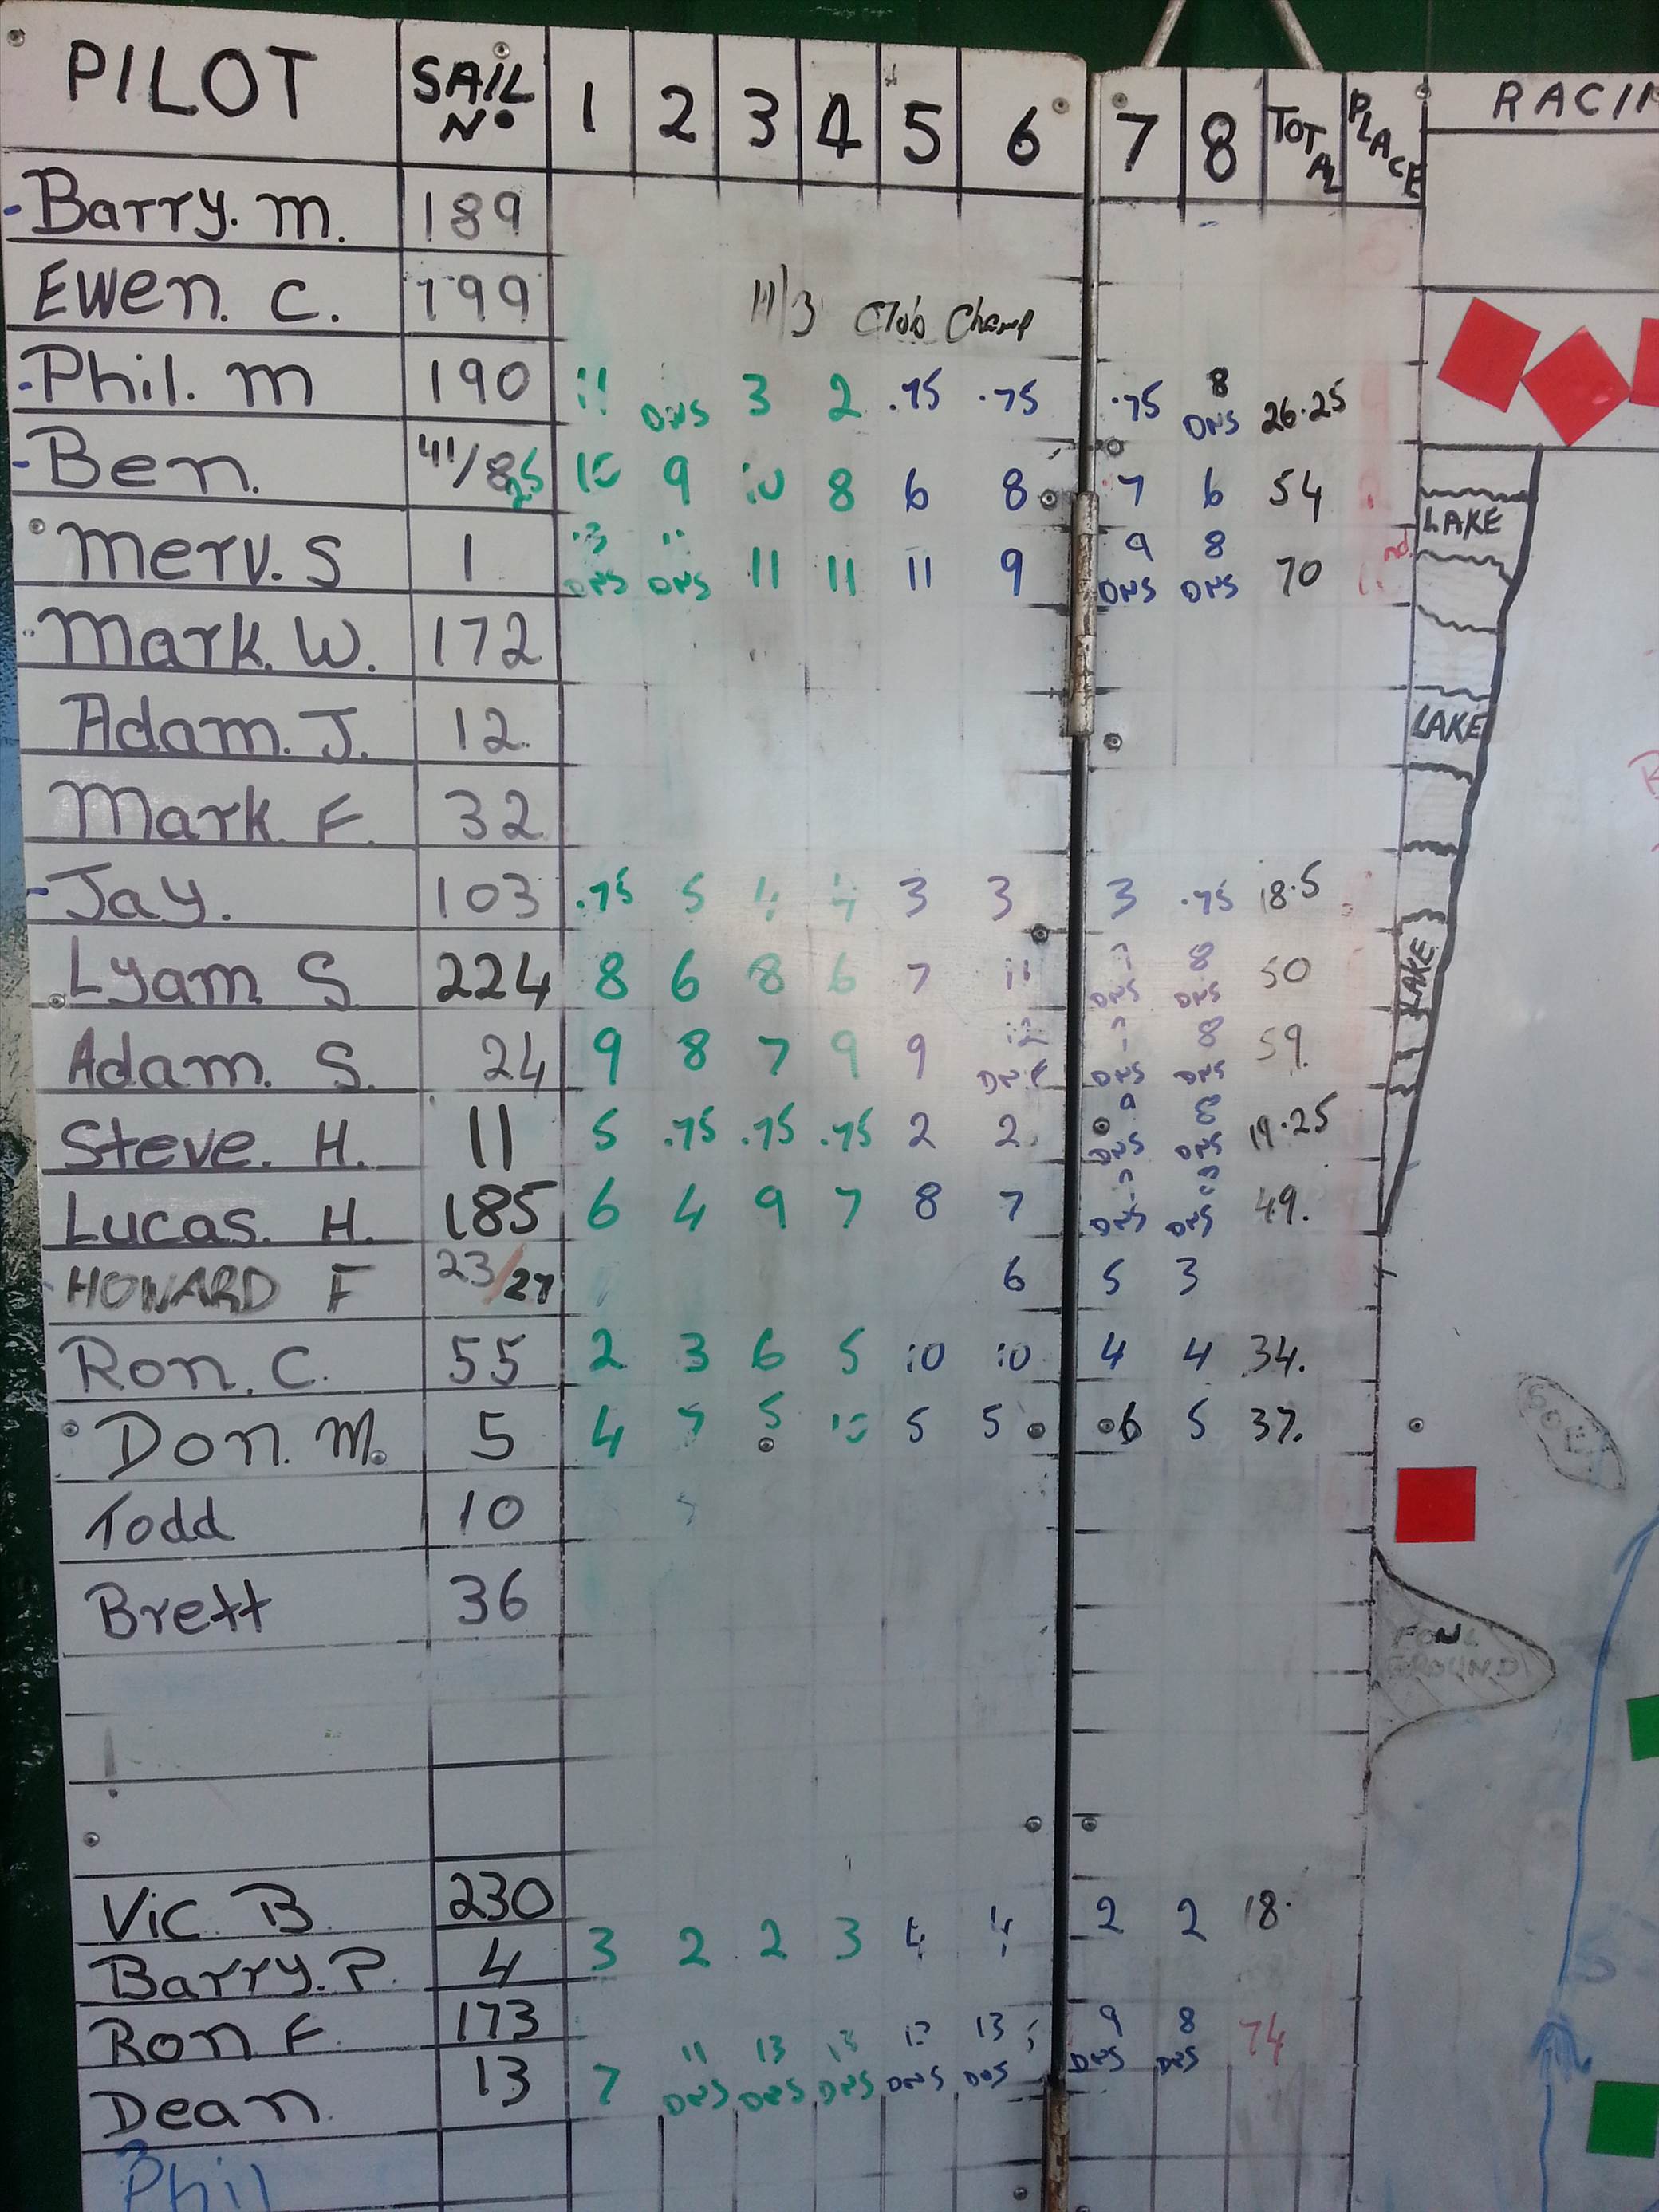 PILOT SAIL Nº 1 2 3 4 5 6 7 8 TOTAL PLACE
Barry. M. 189
Ewen. C. 199
11/3 Club Champ
Phil. M 190 11 DNS 3 2 .75 .75 .75 8 DNS 26.25
Ben. 41/8 10 9 10 8 6 8 7 6 54
Merv. S 1 13 DNS 11 DNS 11 11 11 9 9 DNS 8 DNS 70
Mark. W. 172
Adam. J. 12.
Mark. F. 32
Jay. 103 .75 5 4 4 3 3 3 .75 18.5
Lyam S 224 8 6 8 6 7 11 DNS 8 DNS 50
Adam. S. 24 9 8 7 9 9 12 DNF DNS 8 DNS 59.
Steve. H. 11 5 .75 .75 .75 2 2 9 DNS 8 DNS 19.25
Lucas. H. 185 6 4 9 7 8 7 DNS DNS 49.
HOWARD F 23/27 6 5 3
Ron. C. 55 2 3 6 5 10 10 4 4 34.
Don. M. 5 4 7 5 10 5 5 6 5 37.
Todd 10
Brett 36
Vic. B 230
3 2 2 3 4 4 2 2 18.
Barry. P. 4
Ron F. 173
Dean 13 7 11 DNS 13 DNS 13 DNS DNS 13 DNS 9 DNS 8 DNS 74
Phil
LAKE
LAKE
LAKE